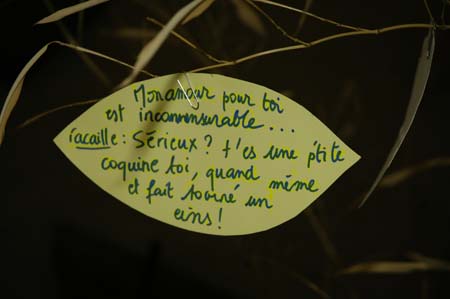 Mon amour pour toi
est incommensurable...
racaille : Sérieux ? t'es une p'tite
coquine toi, quand même
et fait tourné un
eins !